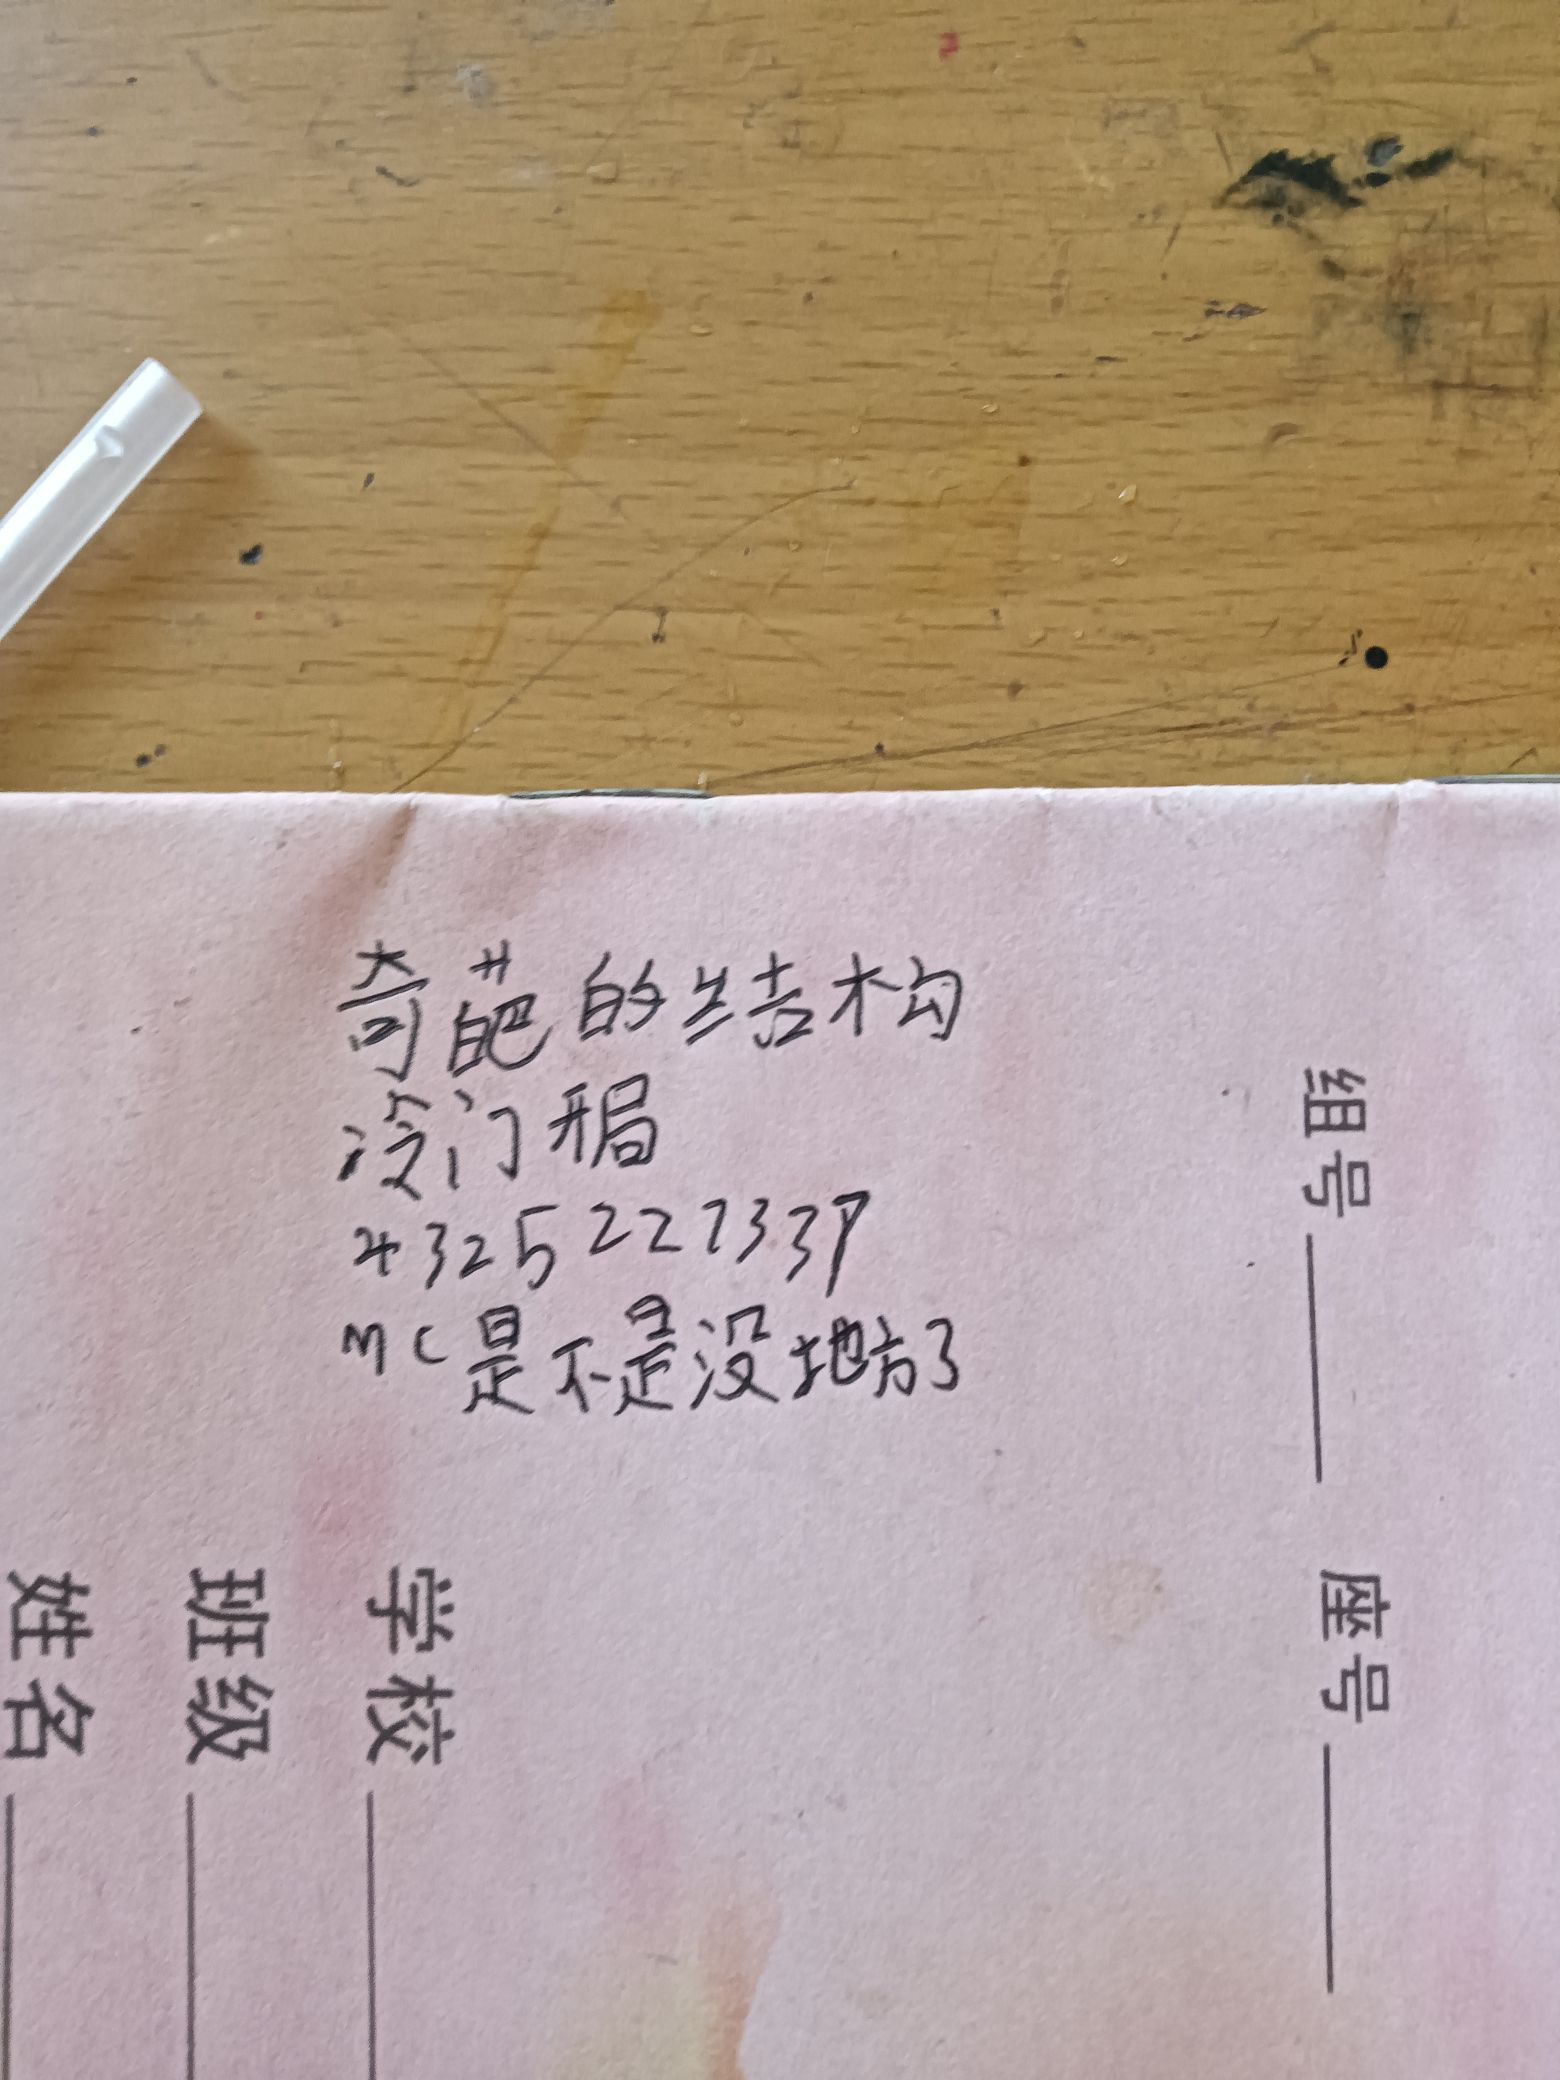 奇葩的结构
冷门开局
4325227339
MC是不是没地方了
组号
座号
学校
班级
姓名